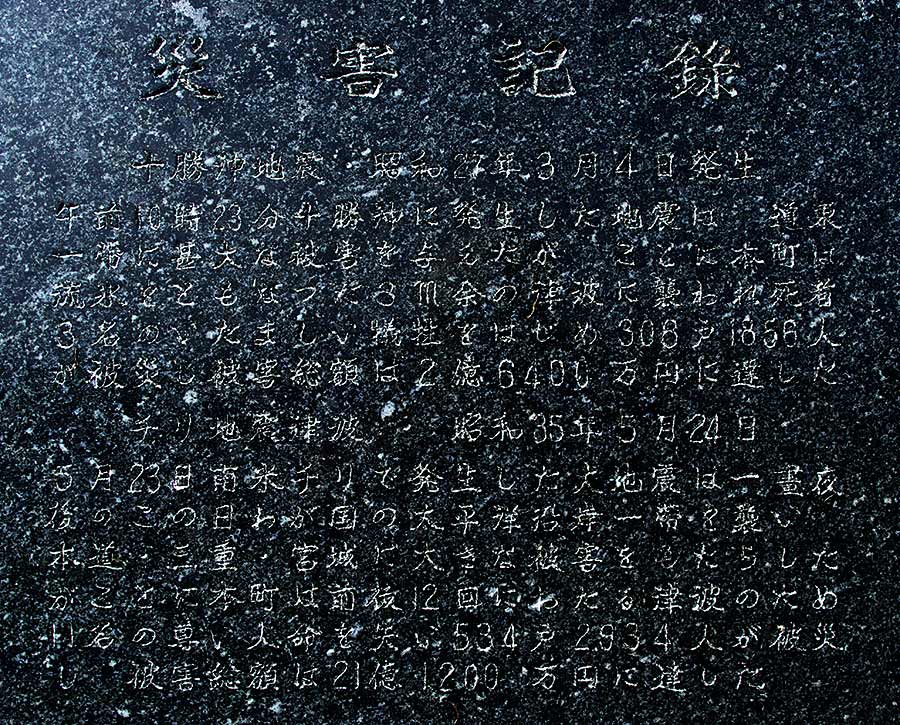 災害記録
十勝沖地震 昭和27年3月4日発生
午前10時23分十勝沖に発生した地震は 道東
一帯に甚大な被害を与えたが ことに本町は
流氷をともなった3m余の津波に襲われ死者
3名のいたましい犠牲をはじめ308戸1856人
が被災し被害総額は2億6400万円に達した
チリ地震津波 昭和35年5月24日
5月23日南米チリで発生した大地震は一昼夜
後のこの日わが国の太平洋沿岸一帯を襲い
本道・三重・宮城に大きな被害をもたらした
がことに本町は前後12回にわたる津波のため
11名の尊い人命を失い534戸2934人が被災
し 被害総額は21億1200万円に達した